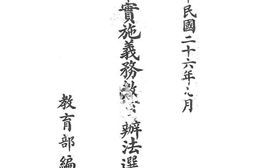 民國二十六年 月
實施義務教育辦法選
教育部編